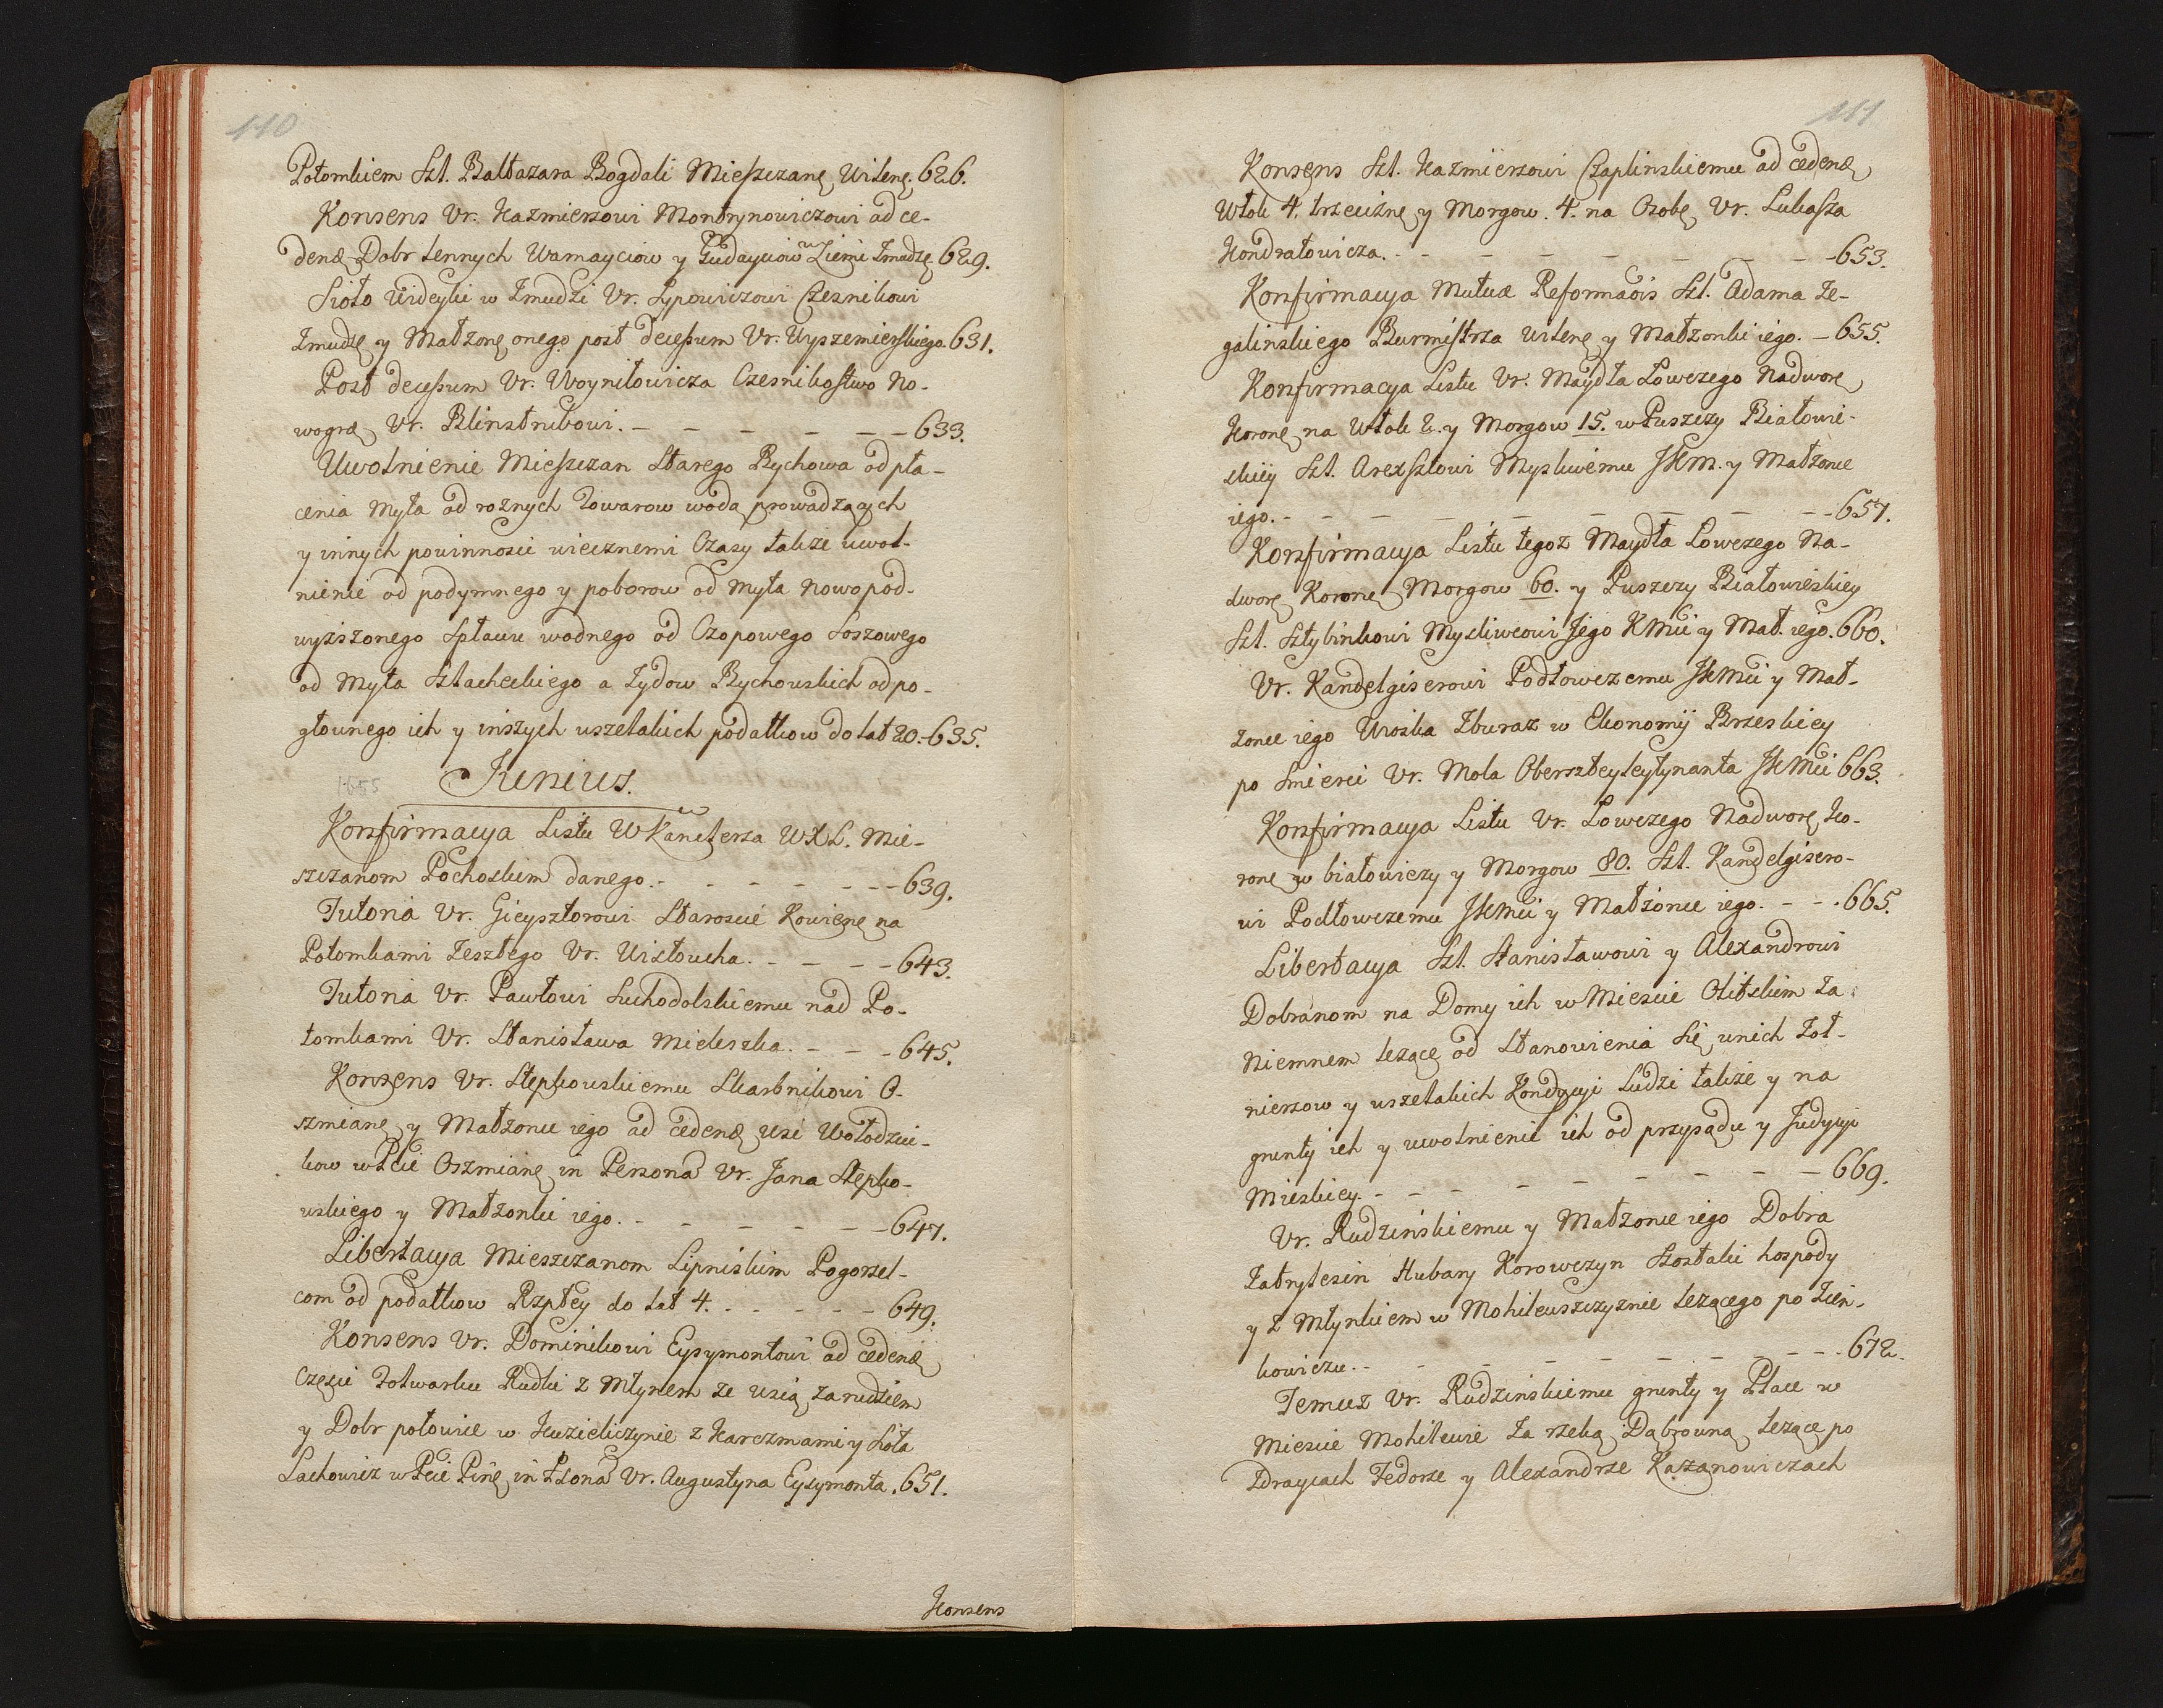 110
Potomkiem Szl. Baltazara Bogdali Mieszczanę Wilenę. 626.
Konsens Ur. Kazmierzowi Montrynowiczowi ad ce-
denđ Dobr lennych Warnayciow y Gudayciow w Ziemi Zmudzę 629.
Sioło Uideyki w Zmudzi Ur. Sypowiczowi Czesnikowi
Zmudzę y Małżonę onego post decessum Ur. Wyszemierskiego. 631.
Post decessum Ur. Woyniłowicza Czesnikostwo No-
wogrđ Ur. Blinstrubowi. - - - - - - 633.
Uwolnienie Mieszczan Starego Bychowa od pła-
cenia Myta od roznych Towarow wodą prowadzących
y innych powinnosci wiecznemi Czasy takze uwol-
nienie od podymnego y poborow od Myta nowo pod-
wyższonego spławu wodnego od Czopowego Soszowego
od Myta Szlacheckiego a Zydow Bychowskich od po-
głownego ich y inszych wszelakich podatkow do lat 20. - 635.
1655 Junius.
Konfirmacya Listu W Kanclerza WXL. Mie-
szczanom Pochoskim danego. - - - - - - - 639.
Tutoria Ur. Gieysztorowi Staroscie Kowienę na
Potomkami Zeszłego Ur. Wisłoucha. - - - - 643.
Tutoria Ur. Pawłowi Suchodolskiemu nad Po-
tomkami Ur. Stanisława Mieleszka. - - - 645.
Konsens Ur. Stepkowskiemu Skarbnikowi O-
szmianę y Małżonce iego ad cedenđ wsi Wołodzie-
kow w Pcie Oszmianę in Persona Ur. Jana Stepko-
wskiego y Małżonki iego. - - - - - - 647.
Libertacya Mieszczanom Lipniskim Pogorzel-
com od podatkow Rzptey do lat 4. - - - - - 649.
Konsens Ur. Dominikowi Eysymontowi ad cedenđ
Częsci Folwarku Rudki z Młynem ze wsią Zarudziem
y Dobr połowie w Kuzieliczynie z Karczmami y Sioła
Lachowicz w Pcie Pinę in Psona Ur. Augustyna Eysymonta. 651.
Konsens
111
Konsens Szl. Kazmierzowi Czaplinskiemu ad cedenđ
Włok 4. trzeciznę y Morgow. 4. na Osobę Ur. Lukasza
Kondratowicza. - - - - - - - - 653.
Konfirmacya Mutuæ Reformaõis Szl. Adama Ze-
galinskiego Burmistrza Wilenę y Małżonki iego. - 655.
Konfirmacya Listu Ur. Maydła Łowczego Nadworę
Koronę na Włok 2. y Morgow 15. w Puszczy Białowie-
skiey Szl. Arexsztowi Mysliwemu JKM. y Małżonce
iego. - - - - - - - - - 657.
Konfirmacya Listu tegoz Maydła Łowczego Na-
dworę Koronę Morgow 60. y Puszczy Białowieskiey
Szl. Sztybinkowi Mysliwcowi Jego KMci y Mał. iego. 660.
Ur. Kandelgiserowi Podłowczemu JKMci y Mał-
zonce iego Wioska Zburaz w Ekonomij Brzeskiey
po smierci Ur. Mola Obersztleytynanta JKMci 663.
Konfirmacya Listu Ur. Łowczego Nadworę Ko-
ronę w białowiczy y Morgow 80. Szl. Kandelgisero-
wi Podłowczemu JKMci y Małżonce iego. - - . 665.
Libertacya Szl. Stanisławowi y Alexandrowi
Dobranom na Domy ich w Miescie Olitskim za
Niemnem lezące od Stanowienia się u nich Zoł-
nierzow y wszelakich Kondycyi Ludzi takze y na
grunty ich y uwolnienie ich od przysądu y Judycyi
Mieskiey. - - - - - - - - 669.
Ur. Rudzińskiemu y Małżonce iego Dobra
Zatrylesin Hubary Korowczyn Szostaki hospody
y z Młynkiem w Mohilewszczyznie lezącego po Zien-
kowiczu. - - - - - - - - - 672.
Temuz Ur. Rudzińskiemu grunty y Place w
Miescie Mohilewie za rzeką Dąbrowną lezące po
Zdraycach Fedorze y Alexandrze Kazanowiczach